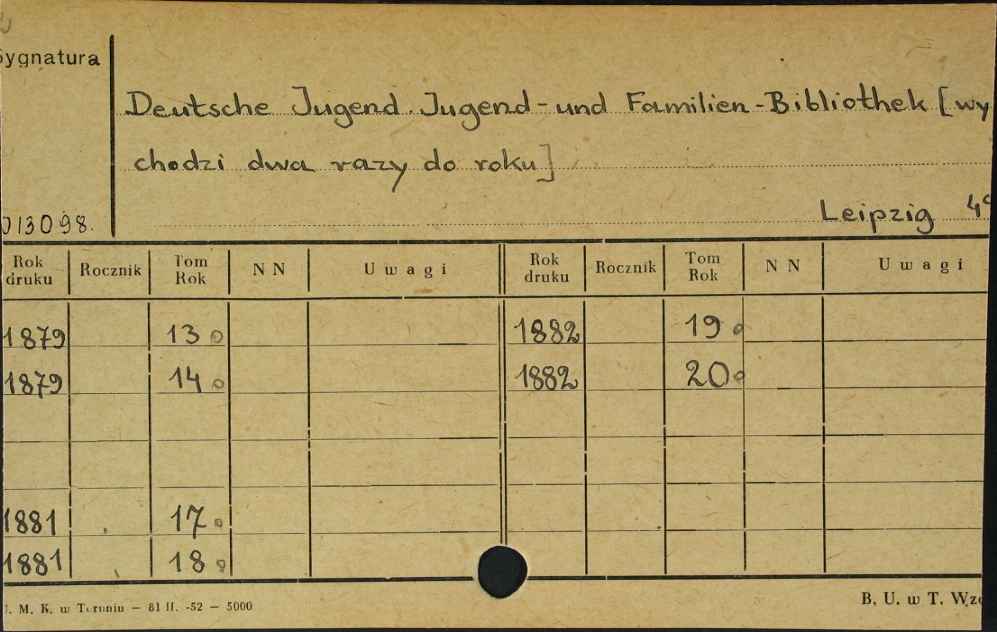 Sygnatura
Deutsche Jugend. Jugend- und Familien-Bibliothek [wy
chodzi dwa razy do roku]
013098.
Leipzig 4°
Rok druku Rocznik Tom Rok NN Uwagi Rok druku Rocznik Tom Rok NN Uwagi
1879 13 1882 19
1879 14 1882 20
1881 17
1881 18
U. M. K. w Toruniu — 81 II. -52 — 5000
B. U. w T. Wzó